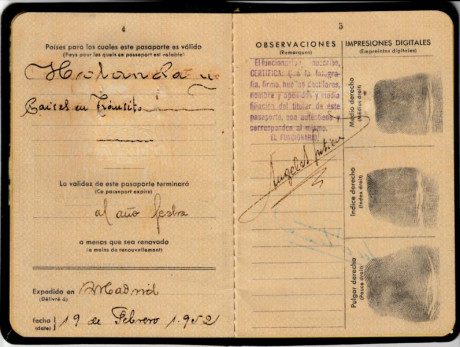 4
Países para los cuales este pasaporte es válido
(Pays pour les quels ce passeport est valable)
Holanda y
Países en tránsito
La validez de este pasaporte terminará
(Ce passeport expire)
al año fecha
a menos que sea renovado
(a moins de renouvellement)
Expedido en Madrid
(Délivré à)
fecha 19 de Febrero 1.952
(date)
5
OBSERVACIONES
(Remarques)
El funcionario
CERTIFICA: que la fotogra-
fía, firma, huellas dactilares,
nombre y apellidos y media
filiación del titular de este
pasaporte, son auténticos y
corresponden al mismo.
EL FUNCIONARIO,
IMPRESIONES DIGITALES
(Empreintes digitales)
Medio derecho
(Médius droit)
Indice derecho
(Index droit)
Pulgar derecho
(Pouce droit)